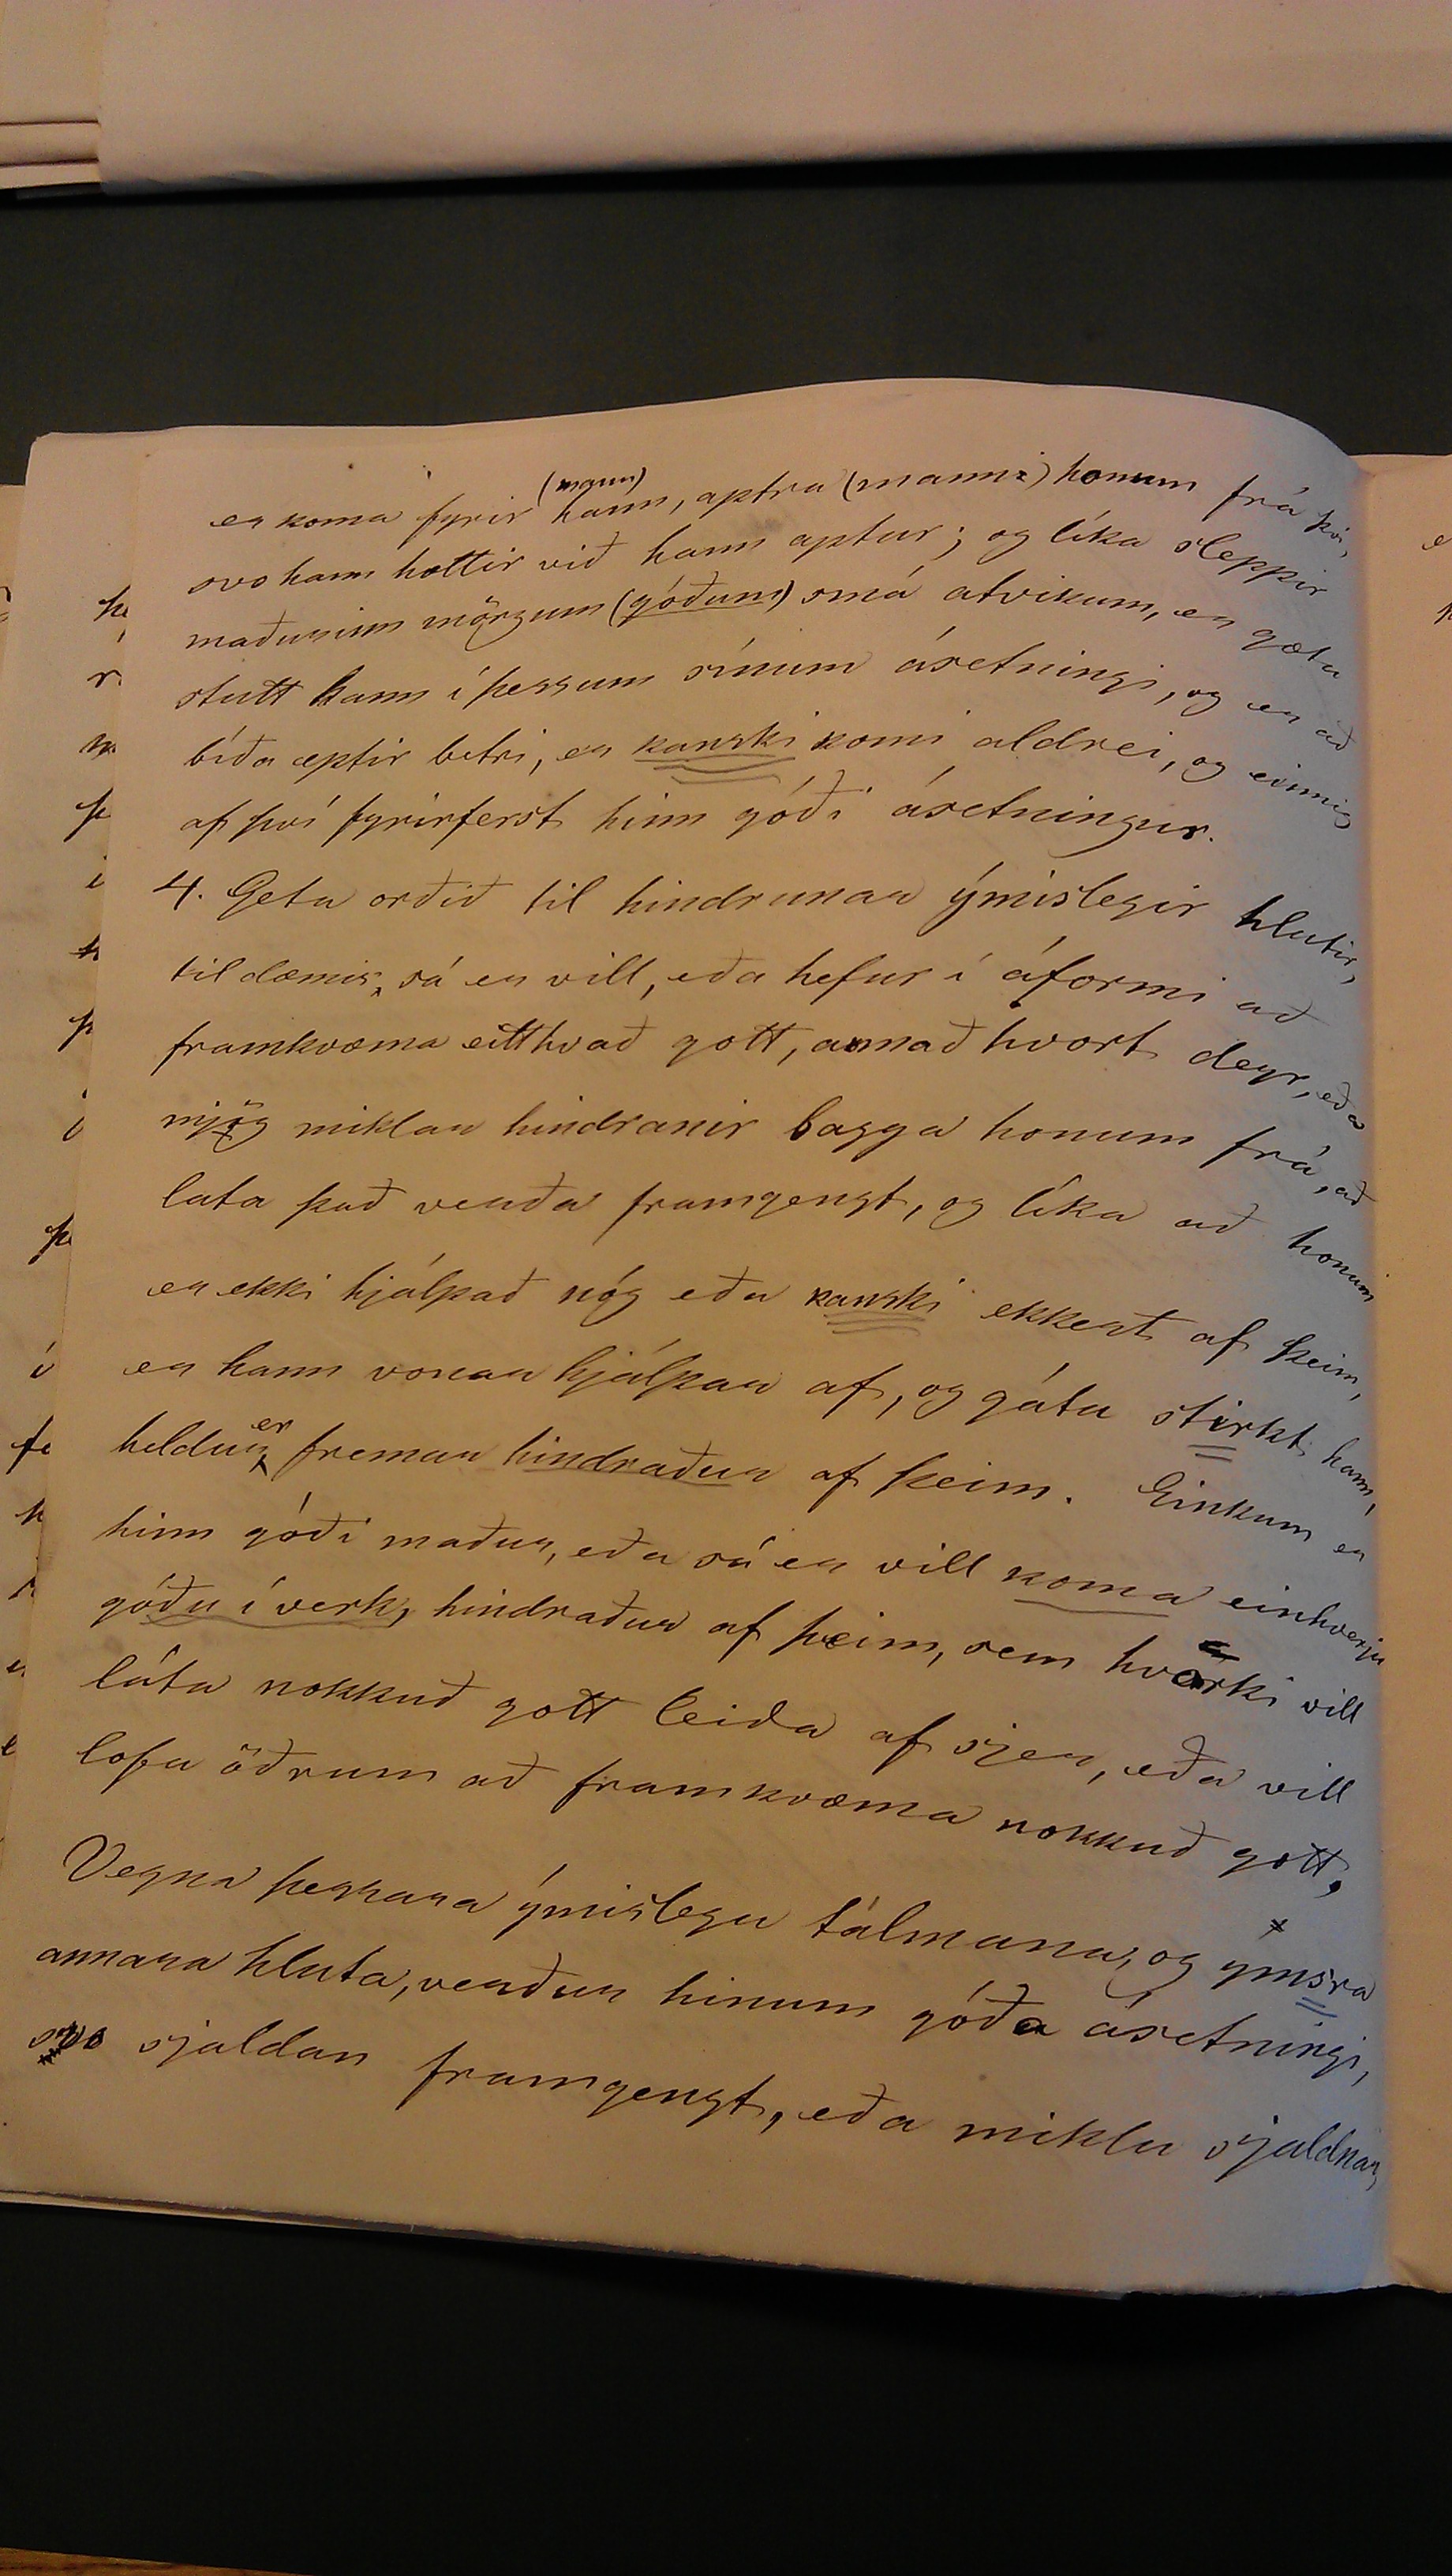 (mann)
er koma fyrir hann, aptra (manni) honum frá því,
svo hann hættir við hann aptur; og líka sleppir
maðurinn mörgum (góðum) smá atvikum, er gæta
stutt hann í þessum sínum ásetningi, og er að
bíða eptir betri, er kanski komi aldrei, og einnig
af því fyrirferst hinn góði ásetningur.
4. Geta orðið til hindrunar ýmislegir hlutir,
til dæmis, sá er vill, eða hefur í áformi að
framkvæma eitthvað gott, annað hvort deyr, eða
mjög miklar hindranir bagga honum frá, að
lata það verða framgengt, og líka að honum
er ekki hjálpað nóg eða kanski ekkert af þeim,
er hann vonar hjálpar af, og gátu stirkt hann,
heldur er fremur hindraður af þeim. Einkum er
hinn góði maður, eða sá er vill koma einhverju
góðu í verk, hindraður af þeim, sem hvorki vill
láta nokkuð gott leiða af sjer, eða vill
lofa öðrum að framkvæma nokkuð gott,
Vegna þessara ýmislegu tálmana, og ýmsra
annara hluta, verður hinum góða ásetningi,
svo sjaldan framgengt, eða miklu sjaldnar,